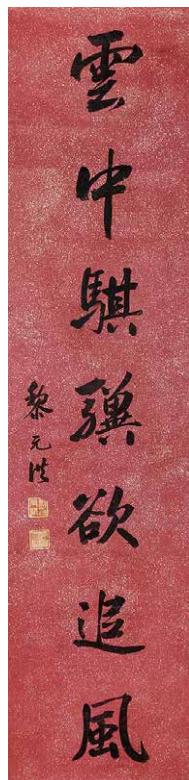 雲中騏驥欲追風
黎元洪